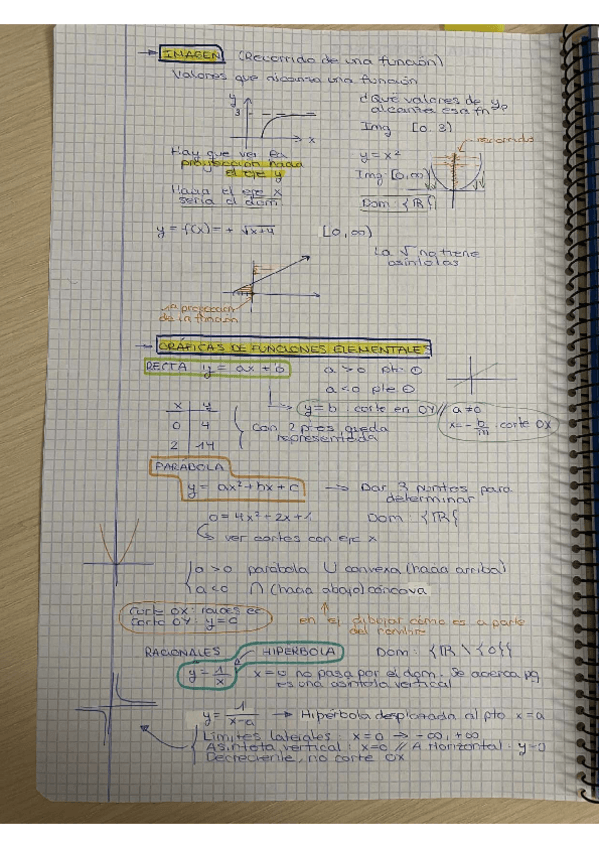 → IMAGEN (Recorrido de una función)
Valores que alcanza una función
y
3
x
¿Qué valores de y
alcanza esa fn?
Img [0, 3)
recorrido
Hay que ver en
proyección hacia
el eje y
Hacia el eje x
sería el dom.
y = x²
Img [0,∞)
Dom: {ℝ}
y = f(x) = + √x+4
[0,∞)
La √ no tiene
asíntotas
la proyección
de la función
→ GRÁFICAS DE FUNCIONES ELEMENTALES
RECTA y = ax + b
a > 0 pte. ⊕
a < 0 pte ⊖
y = b · corte en OY // a ≠ 0
x = - b/m · corte OX
x y
0 4
2 14
Con 2 ptos queda
representada
PARÁBOLA
y = ax² + bx + c
→ Dar 3 puntos para
determinar
0 = 4x² + 2x + 1
Dom: {ℝ{
ver cortes con eje x
a > 0 parábola ∪ convexa (hacia arriba)
a < 0 ∩ (hacia abajo) cóncava
Corte OX: raíces ec
Corte OY: y = c
en el dibujar como es a parte
del nombre
RACIONALES HIPÉRBOLA
Dom: {ℝ \ {0}}
y = 1/x
x = 0 no pasa por el dom. Se acerca pq
es una asíntota vertical
y = 1/x-a → Hipérbola desplazada al pto x = a
Límites laterales: x = 0 → -∞, +∞
Asíntota vertical: x=0 // A Horizontal: y=0
Decreciente, no corte OX